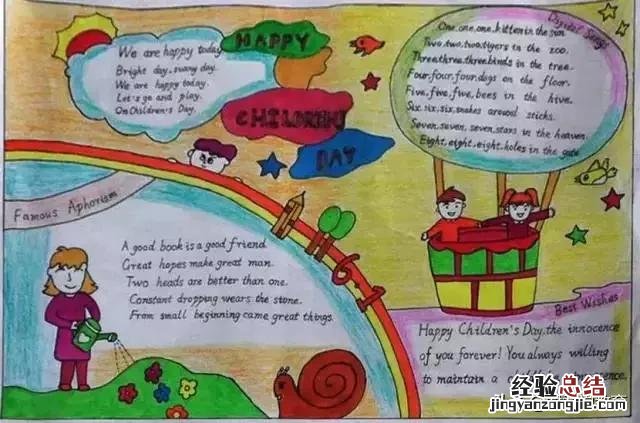 We are happy today
Bright day, sunny day.
We are happy today.
Let's go and play.
On Children's Day.
HAPPY
CHILDREN'S
DAY
Digital Songs
One, one, one, kitten in the sun
Two, two, two, tigers in the zoo.
Three, three, three, birds in the tree.
Four, four, four, dogs on the floor.
Five, five, five, bees in the hive.
Six, six, six, snakes around sticks.
Seven, seven, seven, stars in the heaven.
Eight, eight, eight, holes in the gate.
Famous Aphorism
A good book is a good friend
Great hopes make great man.
Two heads are better than one.
Constant dropping wears the stone.
From small beginning came great things.
6 1
Best Wishes
Happy Children's Day, the innocence
of you forever! You always willing
to maintain a
经验总结
jingyanzongjie.com